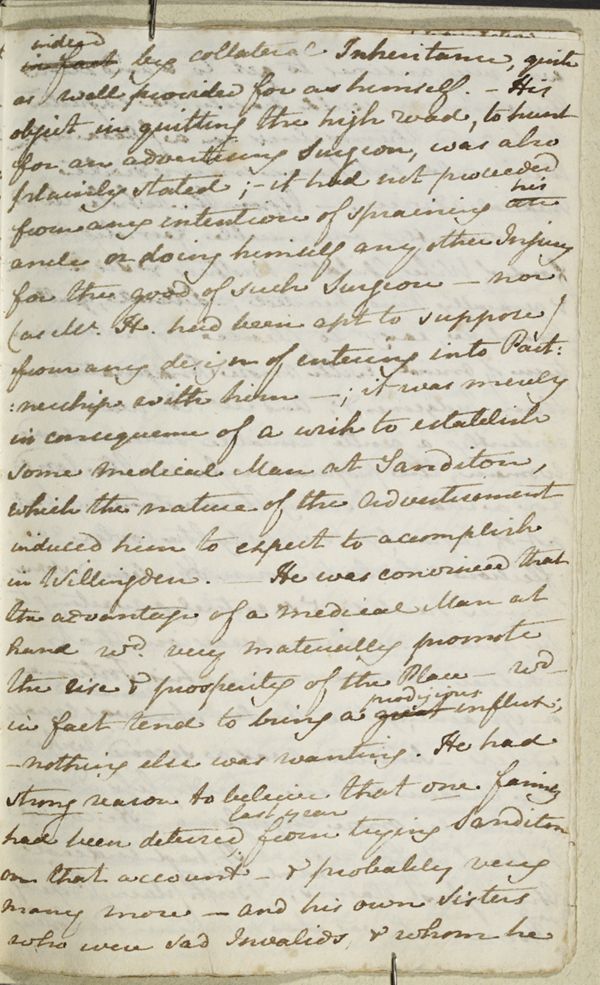 indeed
in fact, by collateral Inheritance, quite
as well provided for as himself. – His
object in quitting the high road, to hunt
for an advertising Surgeon, was also
plainly stated; – it had not proceeded
his
from any intention of spraining an
ancle or doing himself any other Injury
for the good of such Surgeon – nor
(as Mr. H. had been apt to suppose)
from any design of entering into Part:
:nership with him –; it was merely
in consequence of a wish to establish
some medical Man at Sanditon,
which the nature of the Advertisement
induced him to expect to accomplish
in Willingden. – He was convinced that
the advantage of a medical Man at
hand wd. very materially promote
the rise & prosperity of the Place – wd.
prodigious
in fact tend to bring a great influx;
– nothing else was wanting. He had
strong reason to believe that one family
last year
had been deterred from trying Sanditon
on that account – & probably very
many more – and his own Sisters
who were sad Invalids, & whom he